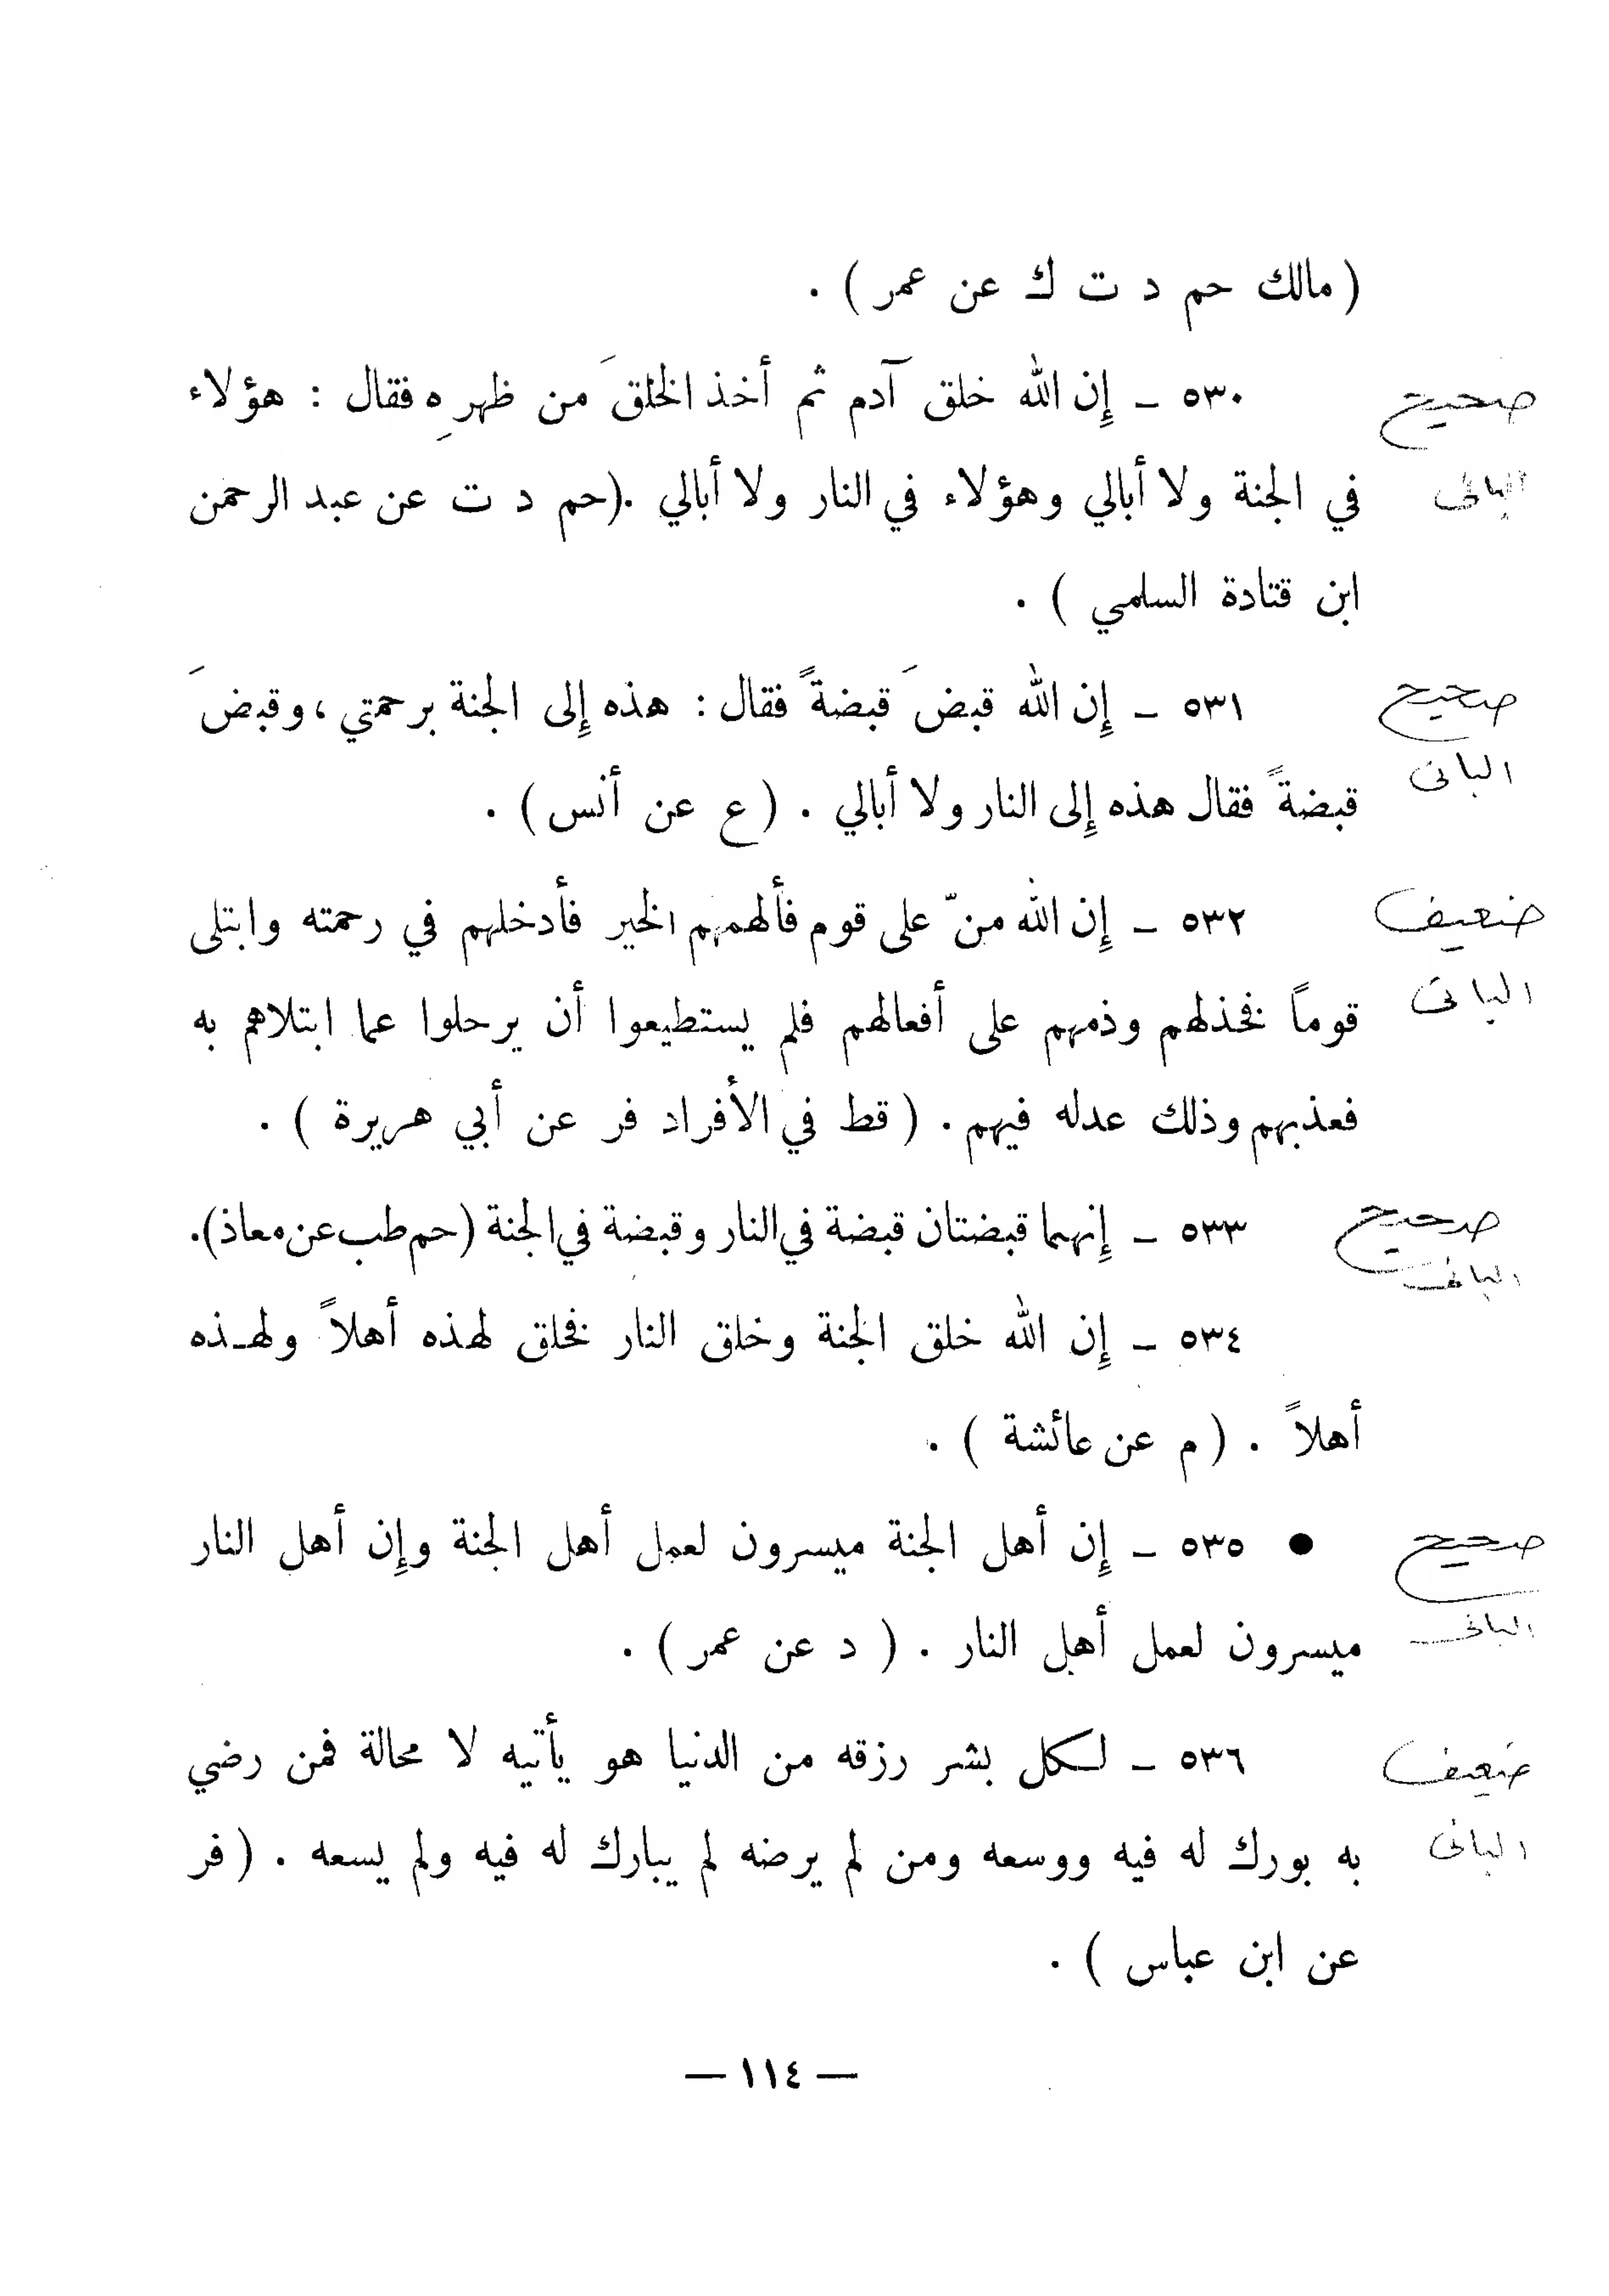 ( مالك حم د ت ك عن عمر ) .
صحيح ٥٣٠ ـ إِن الله خلق آدم ثم أخذ الخلقَ من ظهرِه فقال : هؤلاء
البانى في الجنة ولا أبالي وهؤلاء في النار ولا أبالي .(حم د ت عن عبد الرحمن
ابن قتادة السلمي ) .
صحيح ٥٣١ ـ إِن الله قبضَ قبضةً فقال : هذه إِلى الجنة برحمتي ، وقبضَ
البانى قبضةً فقال هذه إِلى النار ولا أبالي . ( ع عن أنس ) .
ضعيف ٥٣٢ ـ إِن الله منّ على قوم فألهمهم الخير فأدخلهم في رحمته وابتلى
البانى قوماً فخذلهم وذمهم على أفعالهم فلم يستطيعوا أن يرحلوا عما ابتلاهم به
فعذبهم وذلك عدله فيهم . ( قط في الأفراد فر عن أبي هريرة ) .
صحيح ٥٣٣ ـ إِنهما قبضتان قبضة في النار وقبضة في الجنة (حم طب عن معاذ).
البانى
٥٣٤ ـ إِن الله خلق الجنة وخلق النار فخلق لهذه أهلاً ولهـذه
أهلاً . ( م عن عائشة ) .
صحيح ● ٥٣٥ ـ إِن أهل الجنة ميسرون لعمل أهل الجنة وإِن أهل النار
البانى ميسرون لعمل أهل النار . ( د عن عمر ) .
ضعيف ٥٣٦ ـ لـكل بشر رزقه من الدنيا هو يأتيه لا محالة فمن رضي
البانى به بورك له فيه ووسعه ومن لم يرضه لم يبارك له فيه ولم يسعه . ( فر
عن ابن عباس ) .
— ١١٤ —